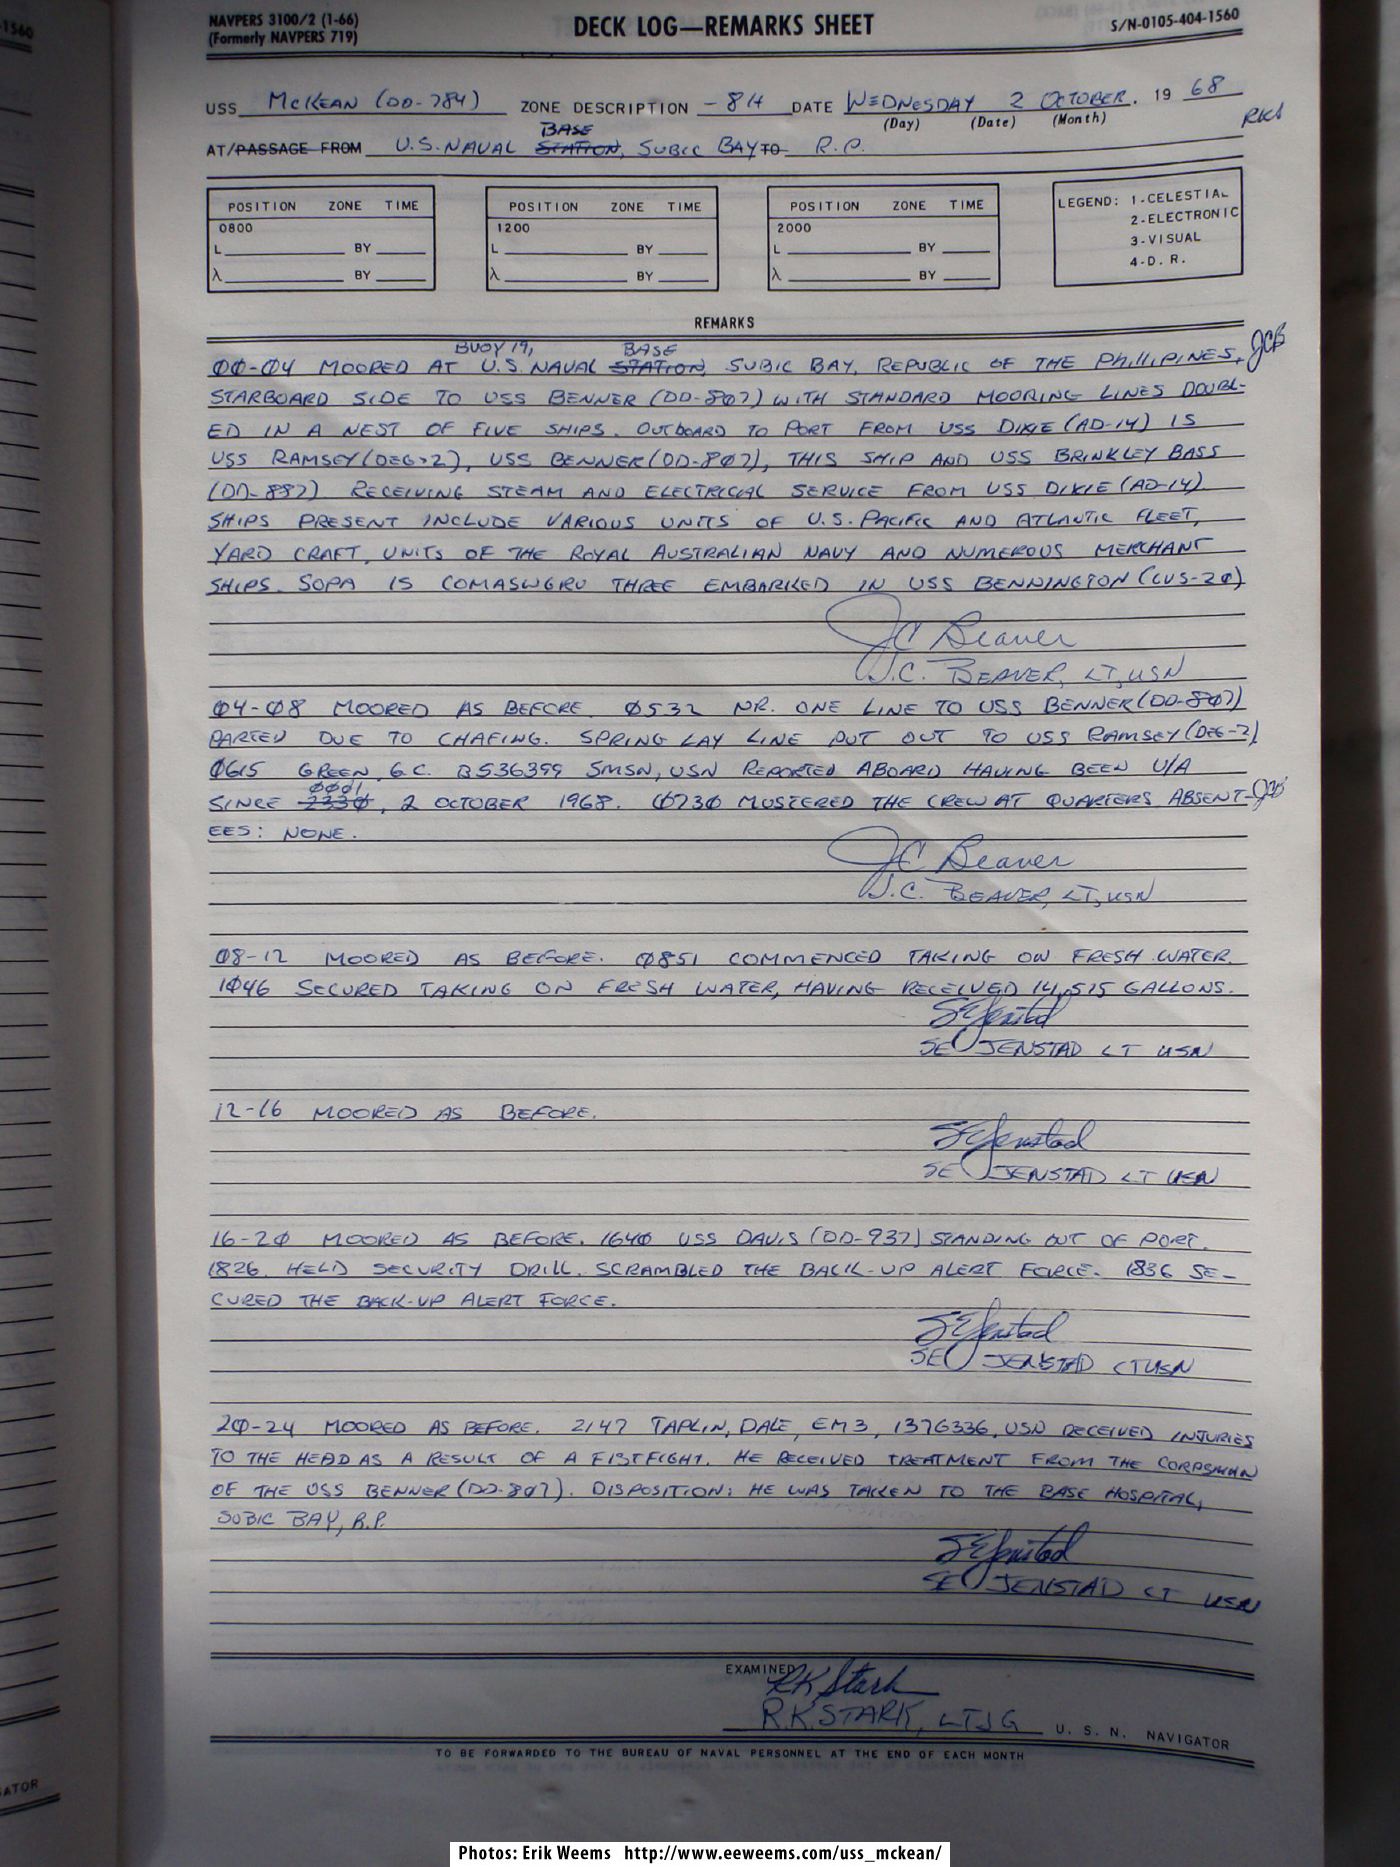 -1560
NAVPERS 3100/2 (1-66)
(Formerly NAVPERS 719)
DECK LOG—REMARKS SHEET
S/N-0105-404-1560
USS McKEAN (DD-784) ZONE DESCRIPTION -8H DATE WEDNESDAY 2 OCTOBER, 19 68
(Day) (Date) (Month)
RKS
BASE
AT/PASSAGE FROM U.S. NAVAL STATION, SUBIC BAY TO R.P.
POSITION ZONE TIME
0800
L BY
λ BY
POSITION ZONE TIME
1200
L BY
λ BY
POSITION ZONE TIME
2000
L BY
λ BY
LEGEND: 1-CELESTIAL
2-ELECTRONIC
3-VISUAL
4-D. R.
REMARKS
BUOY 19, BASE
00-04 MOORED AT U.S. NAVAL STATION, SUBIC BAY, REPUBLIC OF THE PHILLIPINES, JCB
STARBOARD SIDE TO USS BENNER (DD-807) WITH STANDARD MOORING LINES DOUBL-
ED IN A NEST OF FIVE SHIPS. OUTBOARD TO PORT FROM USS DIXIE (AD-14) IS
USS RAMSEY (DEG-2), USS BENNER (DD-807), THIS SHIP AND USS BRINKLEY BASS
(DD-887) RECEIVING STEAM AND ELECTRICAL SERVICE FROM USS DIXIE (AD-14)
SHIPS PRESENT INCLUDE VARIOUS UNITS OF U.S. PACIFIC AND ATLANTIC FLEET,
YARD CRAFT, UNITS OF THE ROYAL AUSTRALIAN NAVY AND NUMEROUS MERCHANT
SHIPS. SOPA IS COMASWGRU THREE EMBARKED IN USS BENNINGTON (CVS-20)
JC Beaver
J.C. BEAVER, LT, USN
04-08 MOORED AS BEFORE. 0532 NR. ONE LINE TO USS BENNER (DD-807)
PARTED DUE TO CHAFING. SPRING LAY LINE PUT OUT TO USS RAMSEY (DEG-2)
0615 GREEN, G.C. B536399 SMSN, USN REPORTED ABOARD HAVING BEEN U/A
0001
SINCE 2330, 2 OCTOBER 1968. 0730 MUSTERED THE CREW AT QUARTERS ABSENT- JCB
EES: NONE.
JC Beaver
J.C. BEAVER, LT, USN
08-12 MOORED AS BEFORE. 0851 COMMENCED TAKING ON FRESH WATER.
1046 SECURED TAKING ON FRESH WATER, HAVING RECEIVED 14,515 GALLONS.
SE Jenstad
SE JENSTAD LT USN
12-16 MOORED AS BEFORE.
SE Jenstad
SE JENSTAD LT USN
16-20 MOORED AS BEFORE. 1640 USS DAVIS (DD-937) STANDING OUT OF PORT.
1826 HELD SECURITY DRILL. SCRAMBLED THE BACK-UP ALERT FORCE. 1836 SE-
CURED THE BACK-UP ALERT FORCE.
SE Jenstad
SE JENSTAD LT USN
20-24 MOORED AS BEFORE. 2147 TAPLIN, DALE, EM3, 1376336, USN RECEIVED INJURIES
TO THE HEAD AS A RESULT OF A FISTFIGHT. HE RECEIVED TREATMENT FROM THE CORPSMAN
OF THE USS BENNER (DD-807). DISPOSITION: HE WAS TAKEN TO THE BASE HOSPITAL,
SUBIC BAY, R.P.
SE Jenstad
SE JENSTAD LT USN
EXAMINED
RK Stark
R.K. STARK, LTJG U. S. N. NAVIGATOR
TO BE FORWARDED TO THE BUREAU OF NAVAL PERSONNEL AT THE END OF EACH MONTH
ATOR
Photos: Erik Weems http://www.eeweems.com/uss_mckean/